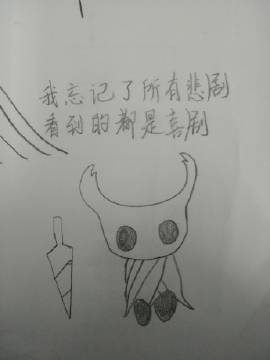 我忘记了所有悲剧
看到的都是喜剧